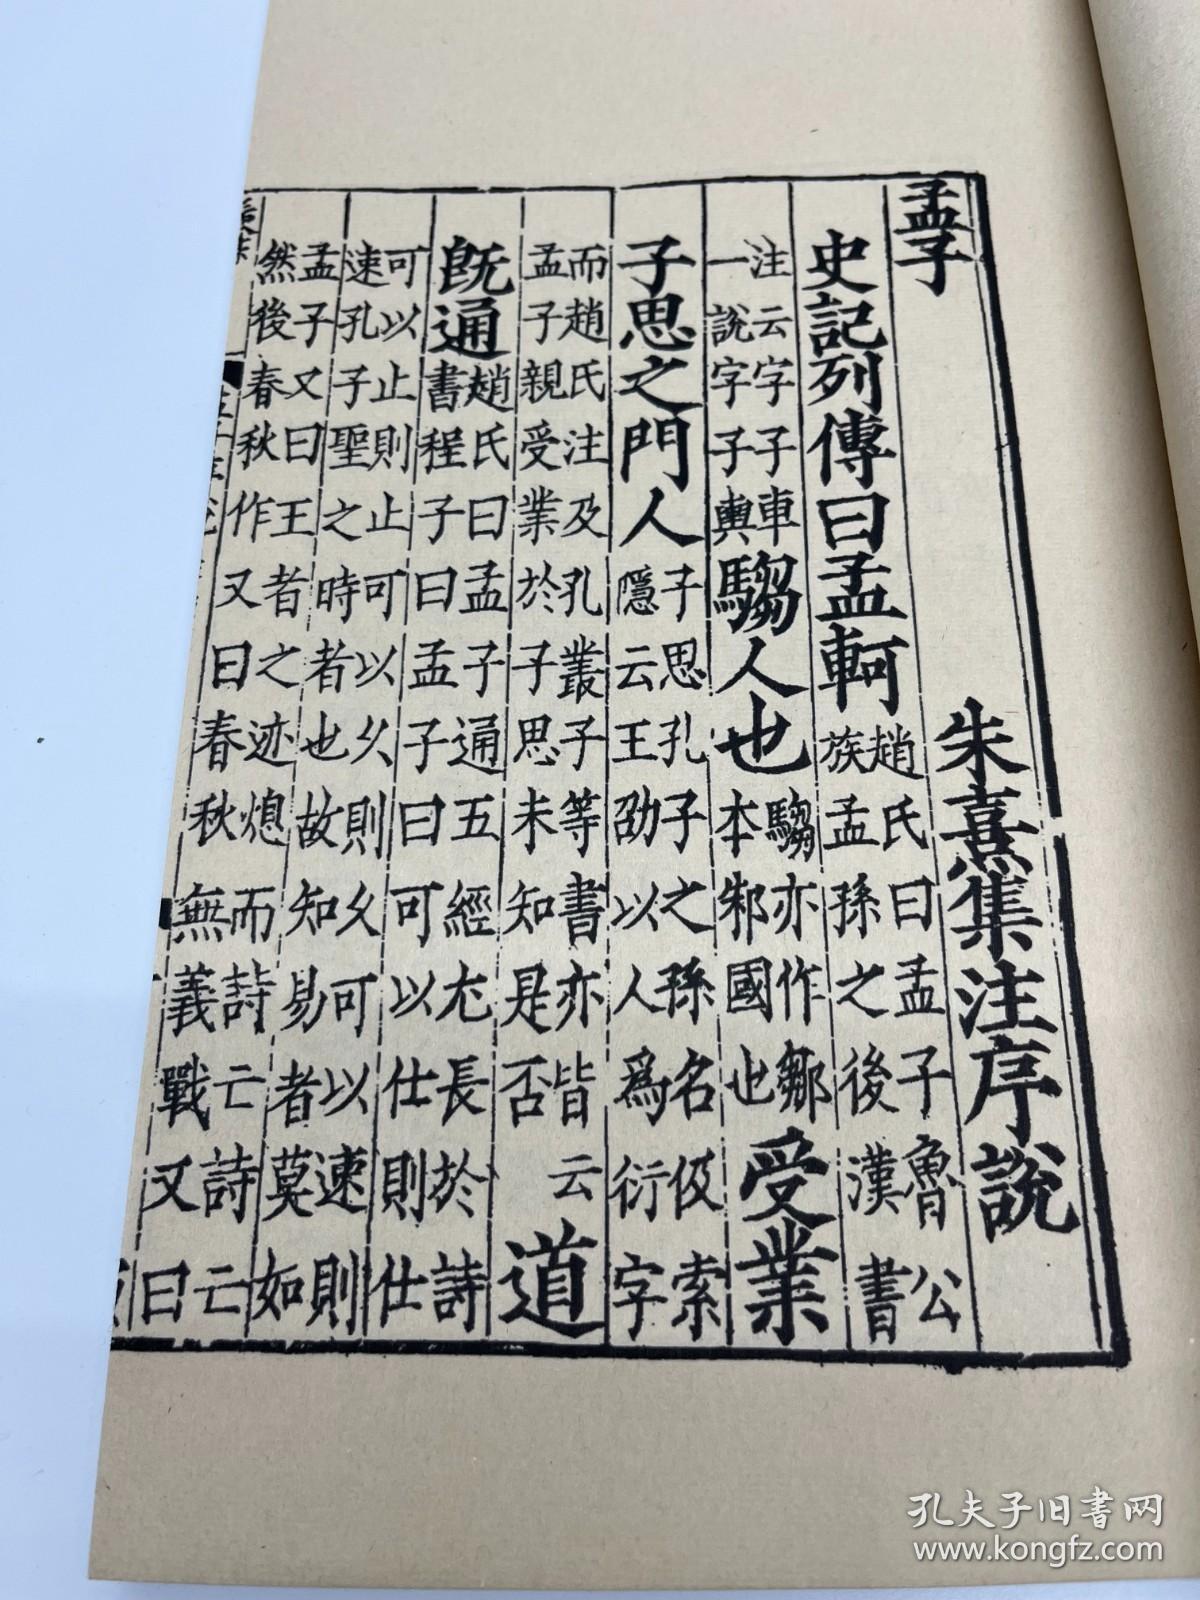 孟子　朱熹集注序說
史記列傳曰孟軻
趙氏曰孟子魯公
族孟孫之後漢書
注云字子車
一說字子輿
騶人也
騶亦作鄒
本邾國也
受業
子思之門人
子思孔子之孫名伋索
隱云王劭以人爲衍字
而趙氏注及孔叢子等書亦皆云
孟子親受業於子思未知是否
道
旣通
趙氏曰孟子通五經尤長於詩
書程子曰孟子曰可以仕則仕
可以止則止可以久則久可以速則
速孔子聖之時者也故知易者莫如
孟子又曰王者之迹熄而詩亡詩亡
然後春秋作又曰春秋無義戰又曰
孔夫子旧书网
www.kongfz.com